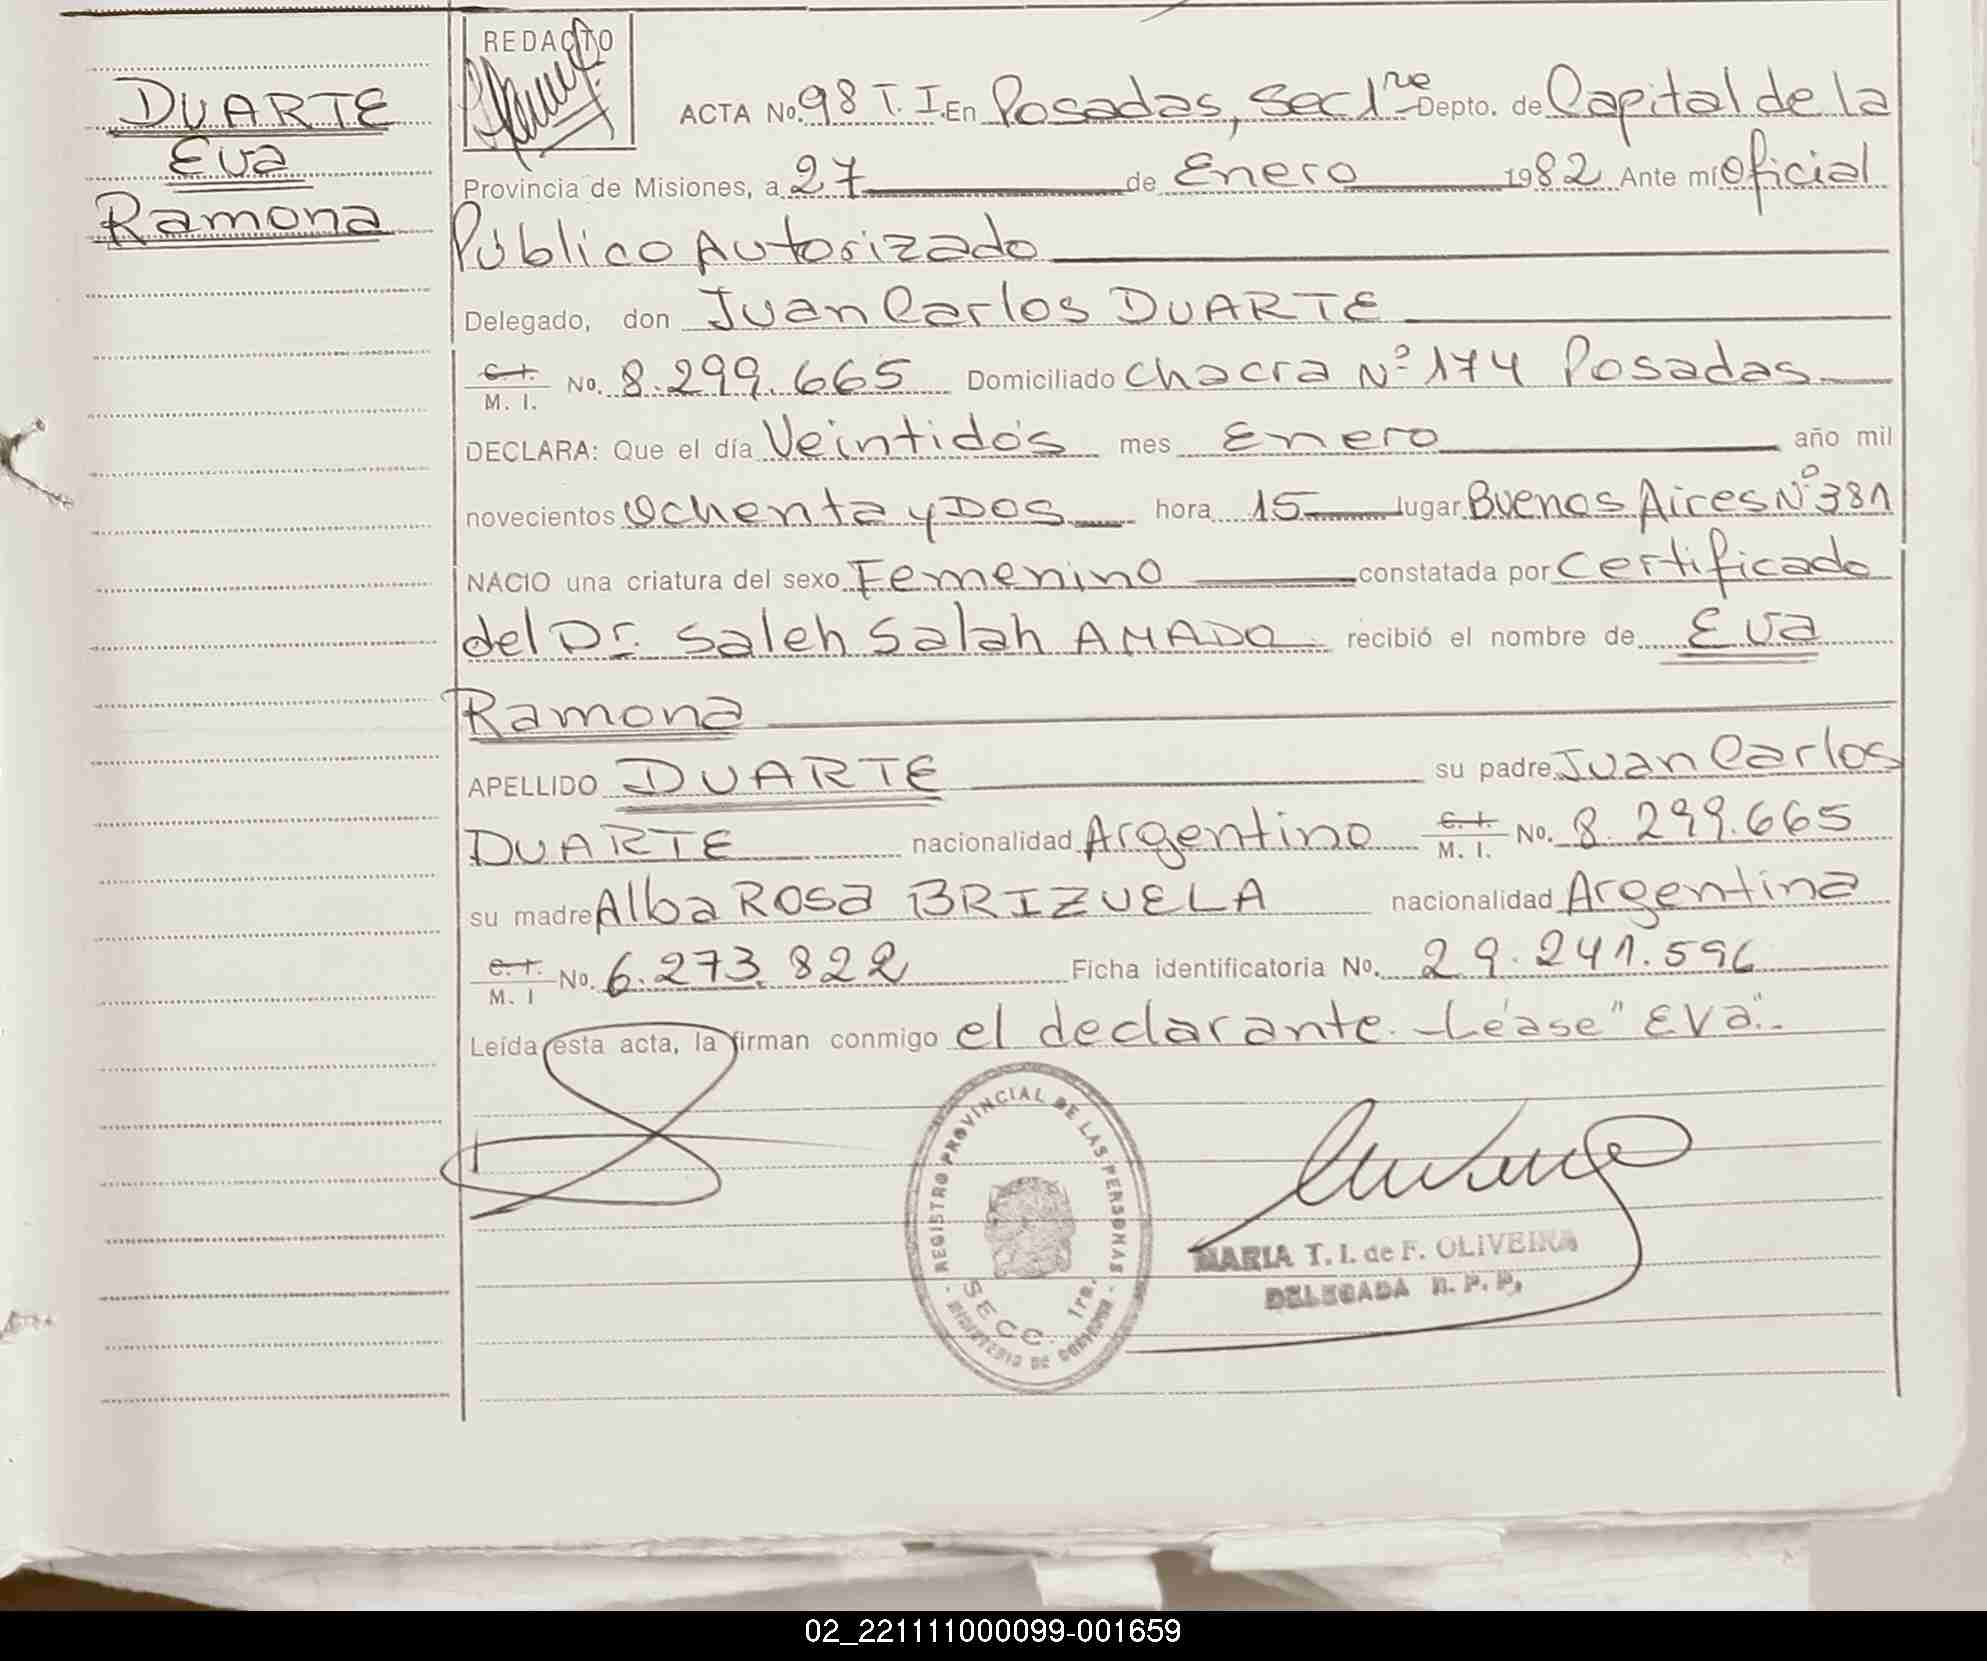 DUARTE
Eva
Ramona
REDACTO
ACTA No. 98 T. I. En Posadas, Sec 1ra Depto. de Capital de la
Provincia de Misiones, a 27 de Enero 1982 Ante mí Oficial
Público Autorizado
Delegado, don Juan Carlos DUARTE
C. I.
M. I. No. 8.299.665 Domiciliado Chacra Nº 174 Posadas
DECLARA: Que el día Veintidós mes Enero año mil
novecientos Ochenta y DOS hora 15 lugar Buenos Aires Nº 381
NACIO una criatura del sexo Femenino constatada por Certificado
del Dr. Saleh Salah AMADO recibió el nombre de Eva
Ramona
APELLIDO DUARTE su padre Juan Carlos
DUARTE nacionalidad Argentino C. I.
M. I. No. 8.299.665
su madre Alba Rosa BRIZUELA nacionalidad Argentina
C. I.
M. I No. 6.273.822 Ficha identificatoria No. 29.241.596
Leída esta acta, la firman conmigo el declarante. -Léase "EVa".-
REGISTRO PROVINCIAL DE LAS PERSONAS
SECC. 1ra.
MINISTERIO DE GOBIERNO
MARIA T. I. de F. OLIVEIRA
DELEGADA R. P. P.
02_221111000099-001659